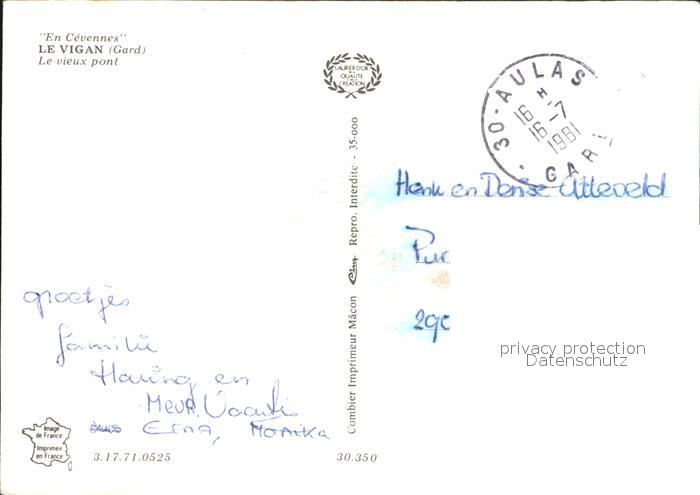 "En Cévennes"
LE VIGAN (Gard)
Le vieux pont
LAURIER D'OR
DE LA
QUALITÉ
CRÉATION
30-AULAS
16 H
16-7
1981
GARD
Henk en Denise Atteveld
Pur
290
privacy protection
Datenschutz
Combier Imprimeur Mâcon Cim Repro. Interdite - 35-000
groetjes
familie
Haring en
Erna, Monika
Image
de France
Imprimée
en France
3.17.71.0525
30.350